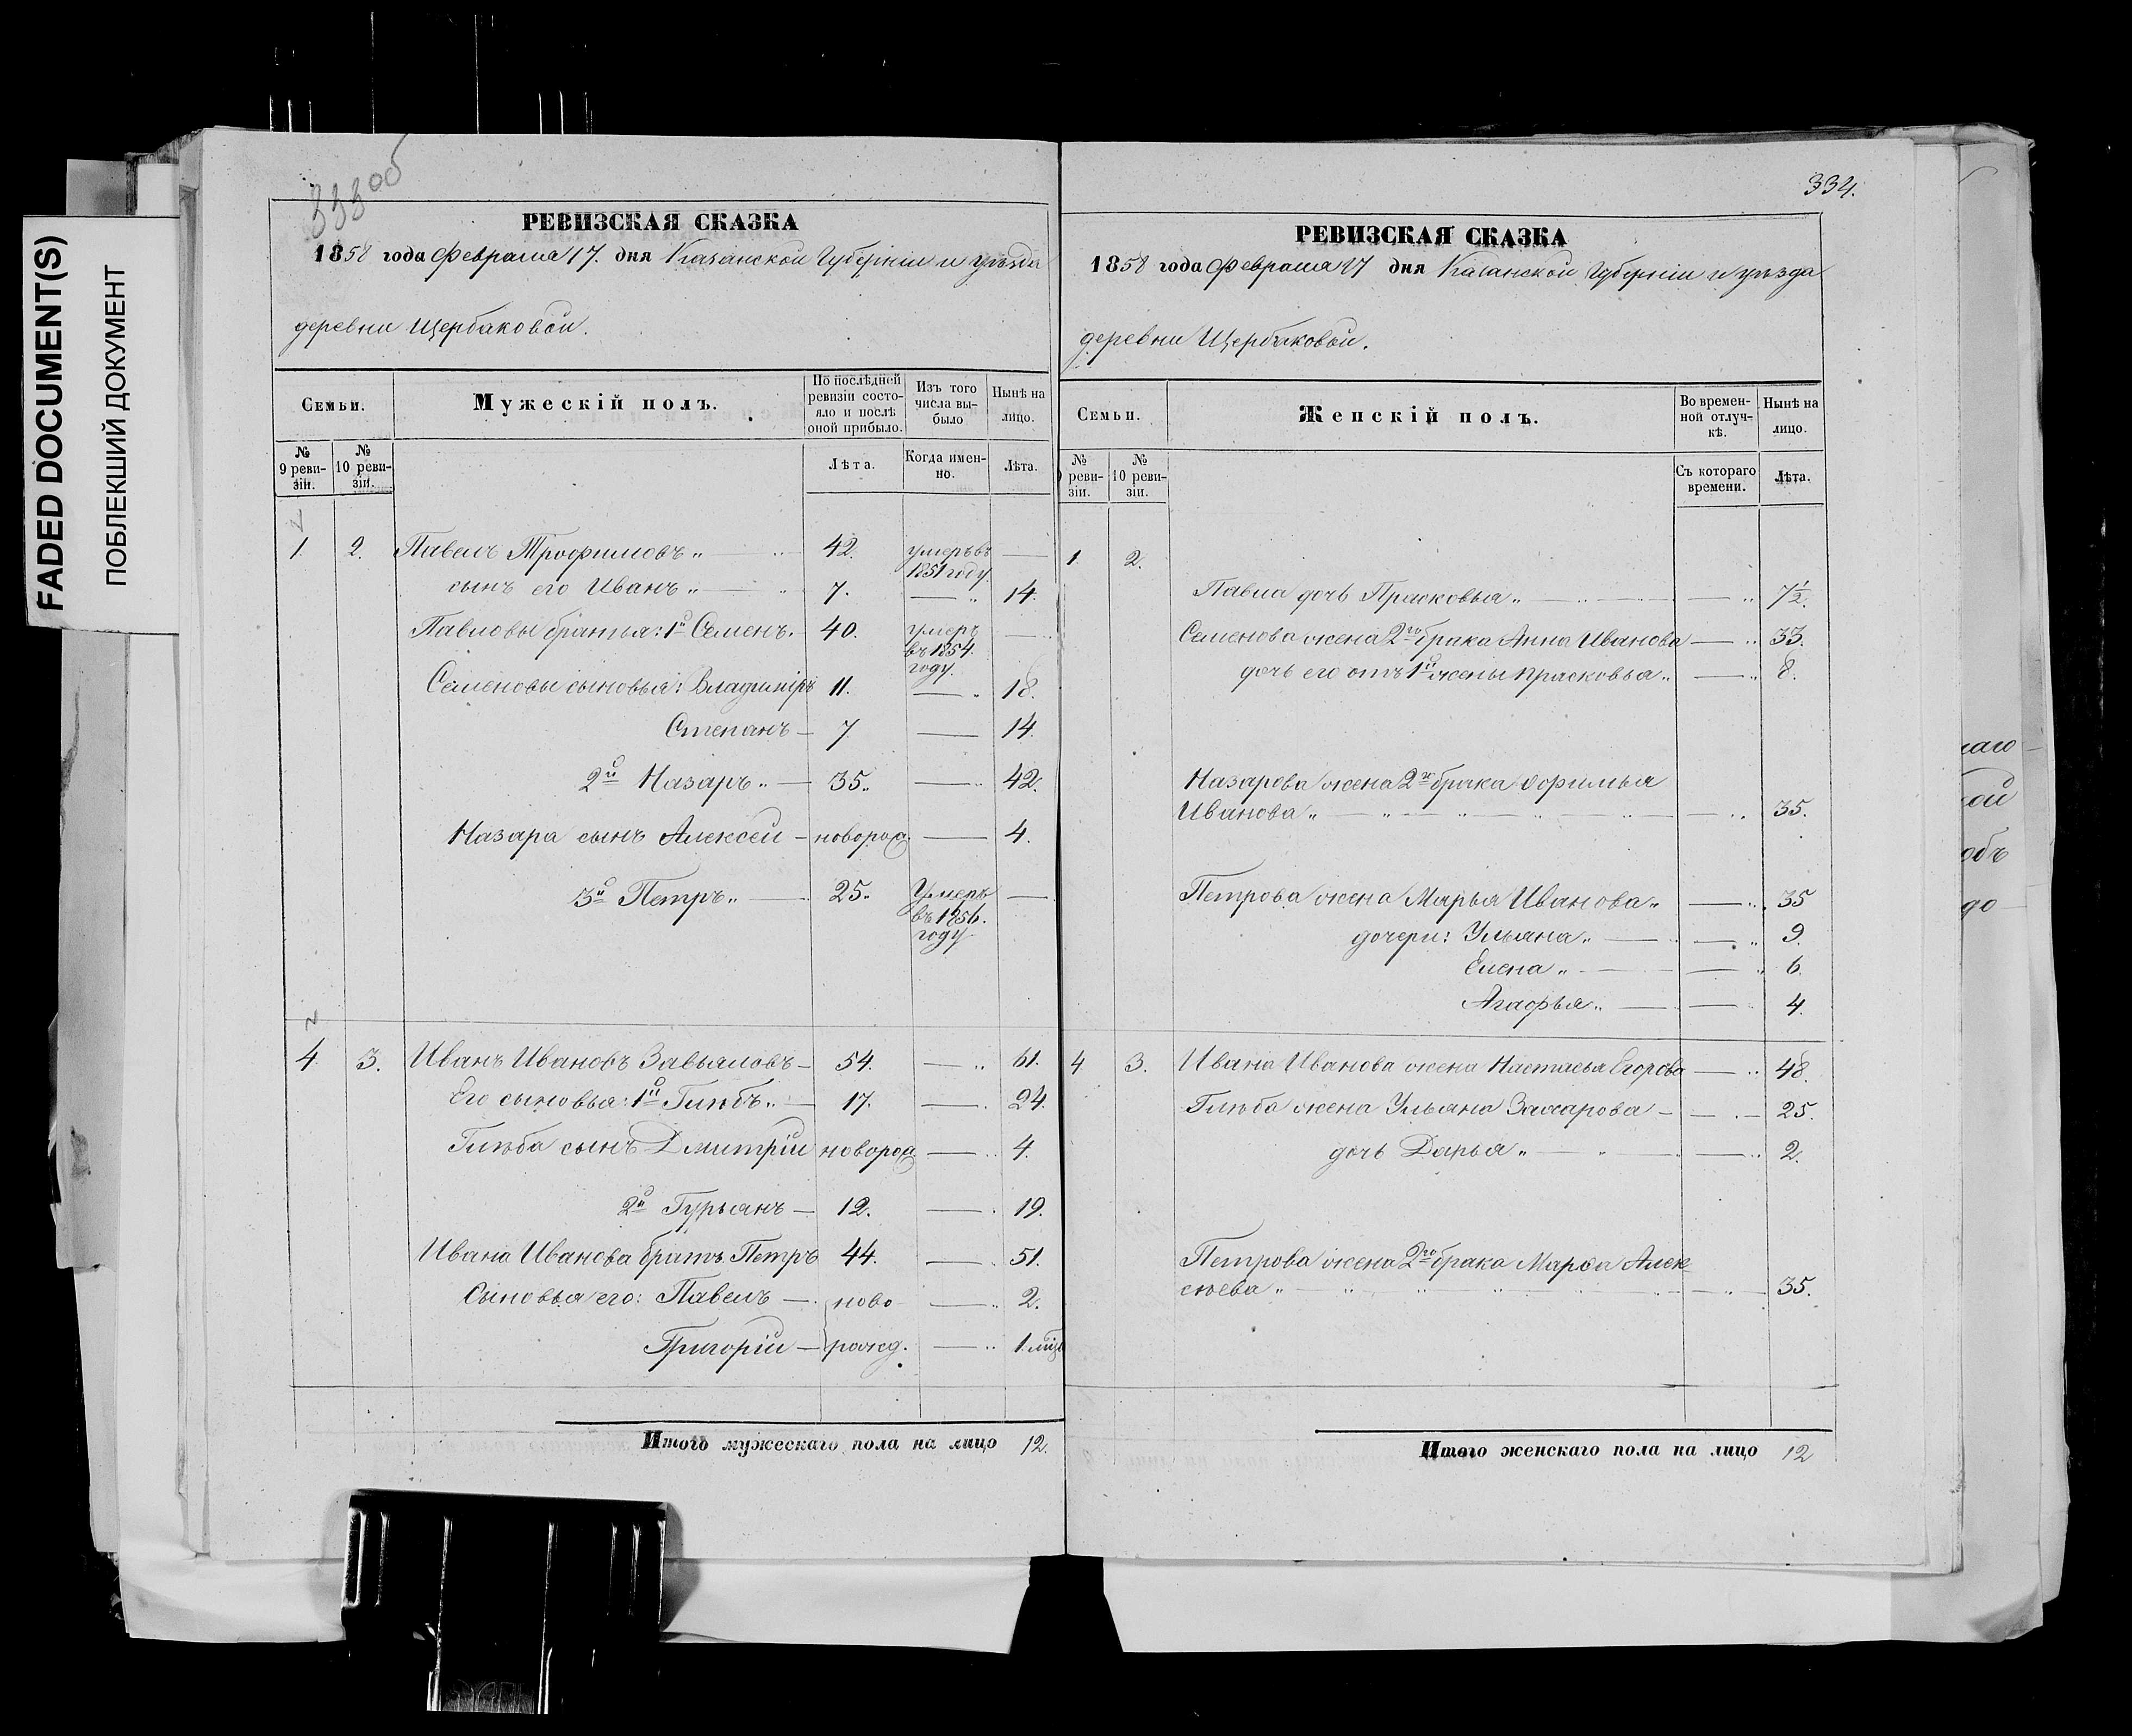 FADED DOCUMENT(S)
ПОБЛЕКШИЙ ДОКУМЕНТ
333 об
РЕВИЗСКАЯ СКАЗКА
1858 года Февраля 17. дня Казанской Губерніи и уѣзда
деревни Щербаковой.
Семьи.
Мужескій полъ.
По послѣдней ревизіи состояло и послѣ оной прибыло.
Изъ того числа выбыло
Нынѣ на лицо.
№ 9 ревизіи.
№ 10 ревизіи.
Лѣта.
Когда именно.
Лѣта.
1. 2. Павелъ Трофимовъ „ — 42. умеръ въ 1851 году —
сынъ его Иванъ „ — 7. — „ 14.
Павловы братья: 1й Семенъ. 40. умеръ въ 1854 году. —
Семеновы сыновья: Владимiръ 11. — „ 18.
Степанъ — 7 — 14.
2й Назаръ „ — 35. — „ 42.
Назара сынъ Алексей — новорожд. — 4.
3й Петръ „ — 25. Умеръ въ 1856. году —
4. 3. Иванъ Ивановъ Завьяловъ — 54. — „ 61.
Его сыновья: 1й Глѣбъ „ — 17. — 24.
Глѣба сынъ Дмитрій новорожд — 4.
2й Гурьянъ — 12. — 19.
Ивана Иванова братъ Петръ 44. — 51.
Сыновья его: Павелъ — ново — 2.
Григорій — рожд. — 1. мѣся
Итого мужескаго пола на лицо 12.
334.
РЕВИЗСКАЯ СКАЗКА
1858 года Февраля 17 дня Казанской Губерніи и уѣзда
деревни Щербаковой.
Семьи.
Женскій полъ.
Во временной отлучкѣ.
Нынѣ на лицо.
№ ревизіи.
№ 10 ревизіи.
Съ котораго времени.
Лѣта.
1 2.
Павла дочь Прасковья „ — „ 7½.
Семенова жена 2го брака Анна Иванова — „ 33.
дочь его отъ 1й жены Прасковья „ — „ 8.
Назарова жена 2го брака Афимья
Иванова „ — „ 35.
Петрова жена Марья Иванова „ — „ 35
дочери: Ульяна „ — „ 9.
Елена „ — „ 6.
Агафья „ — 4.
4 3. Ивана Иванова жена Настасья Егорова — „ 48.
Глѣба жена Ульяна Захарова — — 25.
дочь Дарья „ — „ 2.
Петрова жена 2го брака Марѳа Алек
сѣева „ — „ 35.
Итого женскаго пола на лицо 12
наго
ой
объ
до